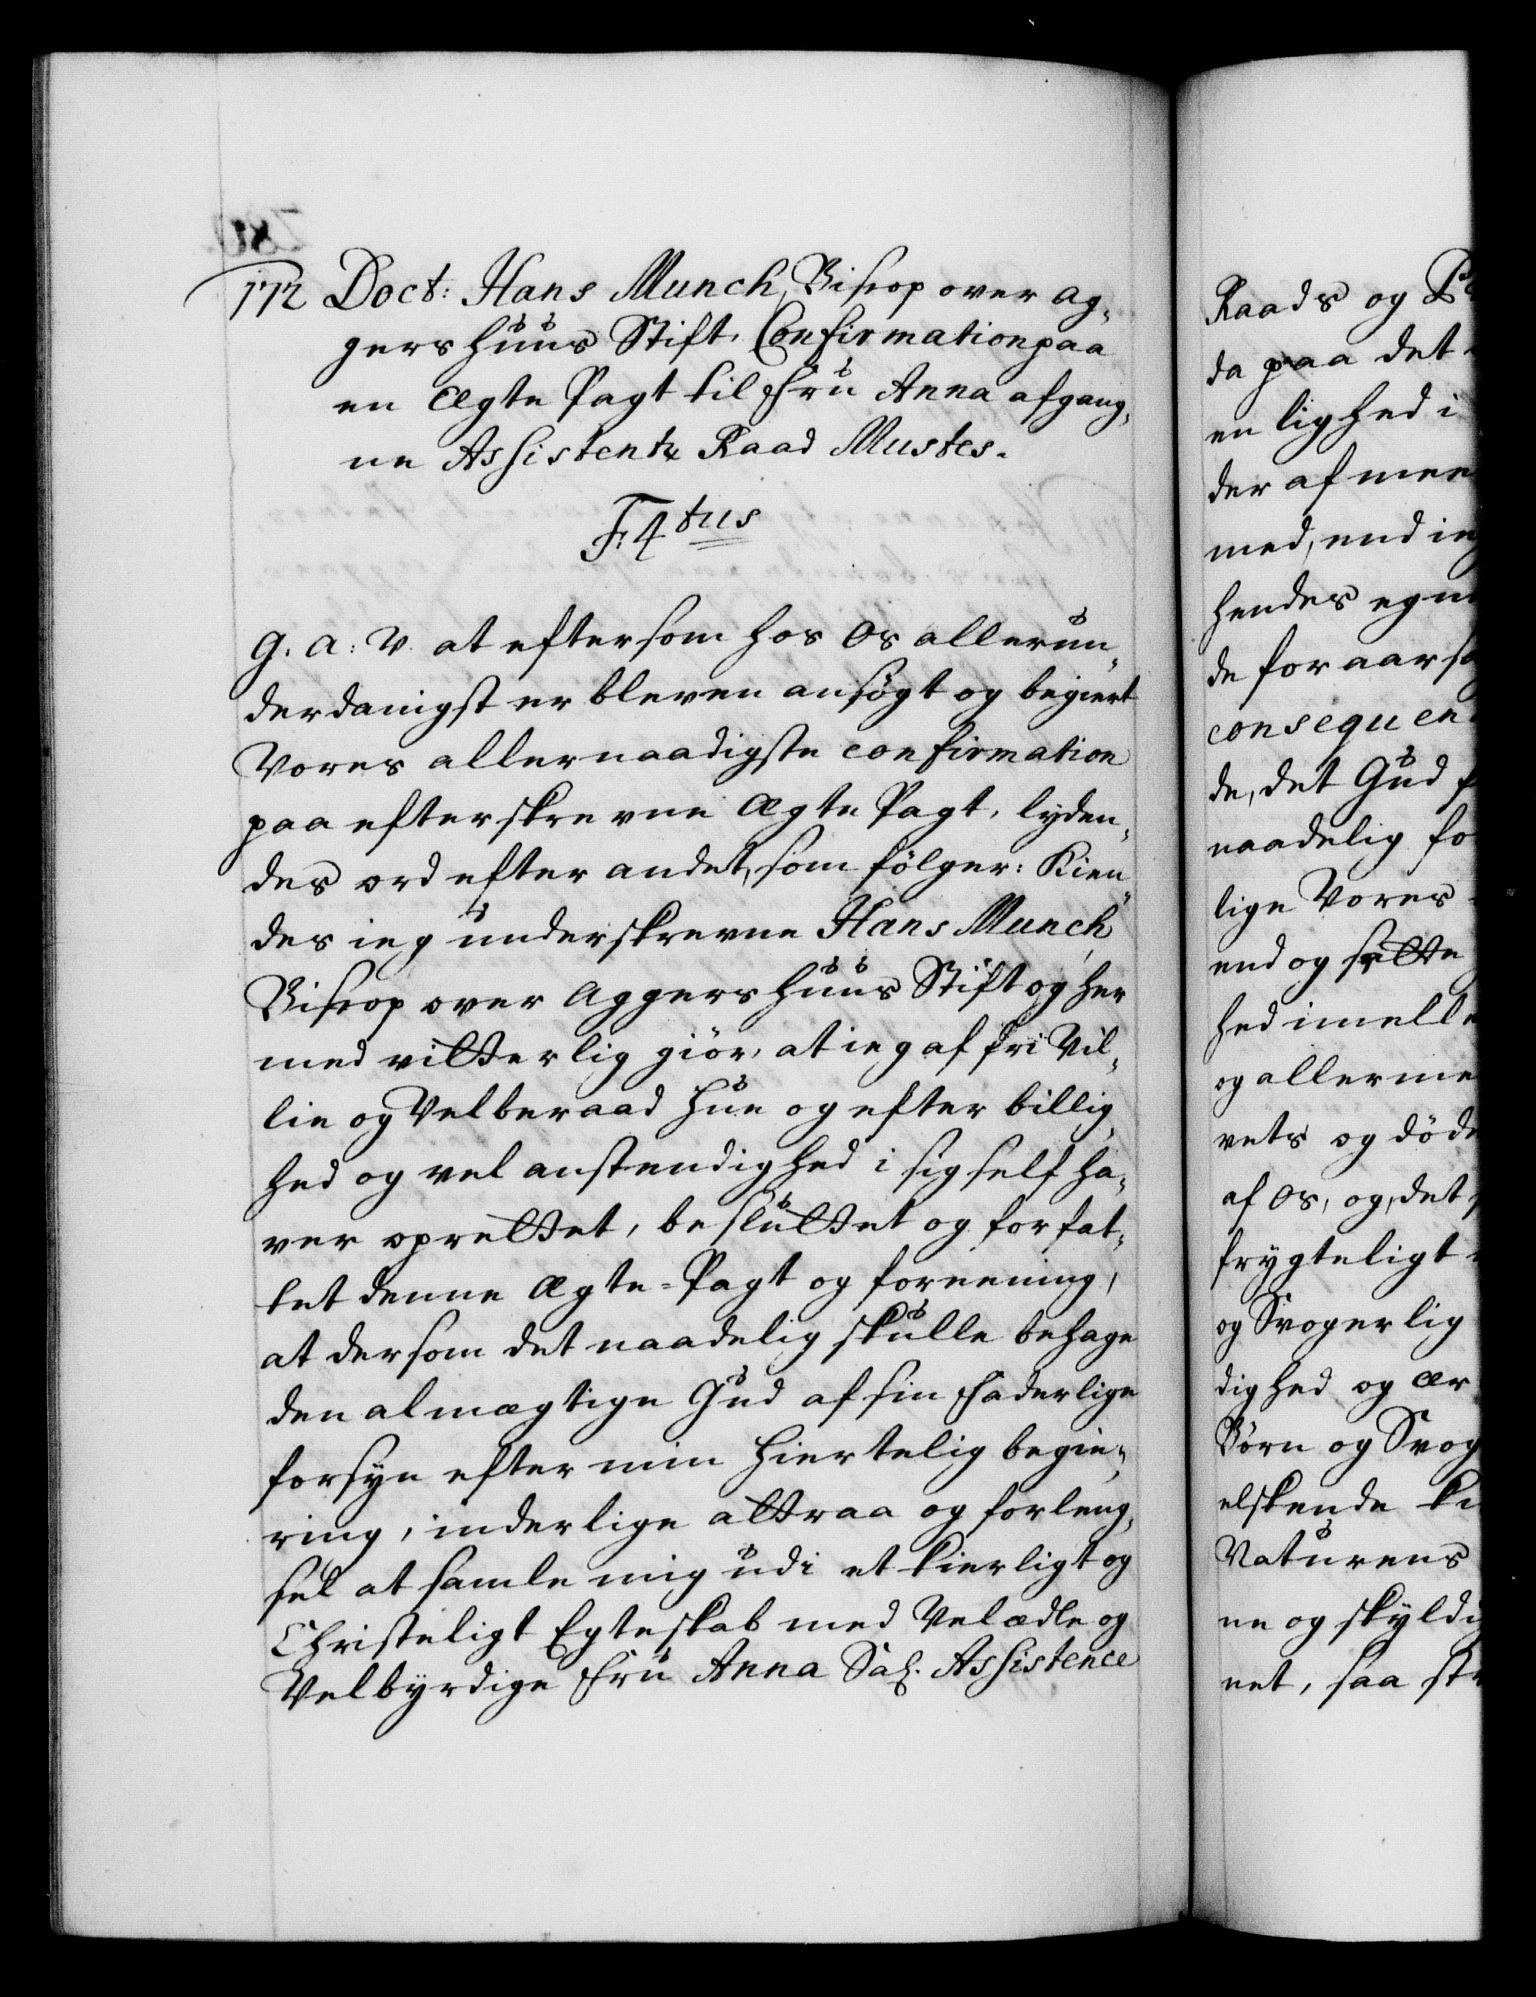 172 Doct: Hans Munch, Biscop over Ag-
gershuus Stift, Confirmation paa
en Ægte Pagt til Fru Anna afgang-
ne Assistentz Raad Mustes.
F: 4tus
G. A: V. at eftersom hos Os allerun-
derdanigst er bleven ansøgt og begiert
Vores allernaadigste confirmation
paa efterskrevne Ægte Pagt, lyden-
des ord efter andet, som følger: Kien-
des ieg underskrevne Hans Munch
Biscop over Aggershuus Stift og her
med vitterlig giør, at ieg af fri Vil-
lie og Velberaad Hue og efter billig-
hed og vel anstendighed i sig self ha-
ver oprettet, besluttet og forfat-
tet denne Ægte-Pagt og foreening,
at dersom det naadelig skulle behage
den almægtige Gud af sin Faderlige
forsyn efter min Hiertelig begie-
ring, inderlige attraa og forleng-
sel at samle mig udi et kierligt og
Christeligt Egteskab med Velædle og
Velbyrdige Fru Anna Sal. Assistence
Raads og
da paa det
en lighed i
der af mee
med, end ieg
hendes egn
de foraarsa
consequen
de, det Gud
naadelig fo
lige Vores
end og sette
hed imelle
og allerme
vets og døde
af Os, og, det
frygteligt
og Svogerlig
dighed og ær
Børn og Svog
elskende
Naturens
ne og skyldi
net, saa